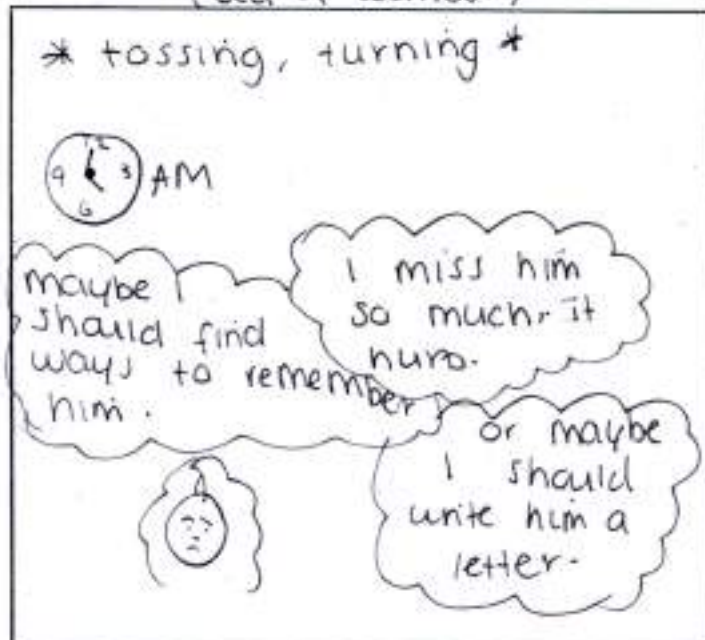 * tossing, turning *
12
9 3 AM
6
maybe I
should find
ways to remember
him.
I miss him
so much. it
hurts.
or maybe
I should
write him a
letter.